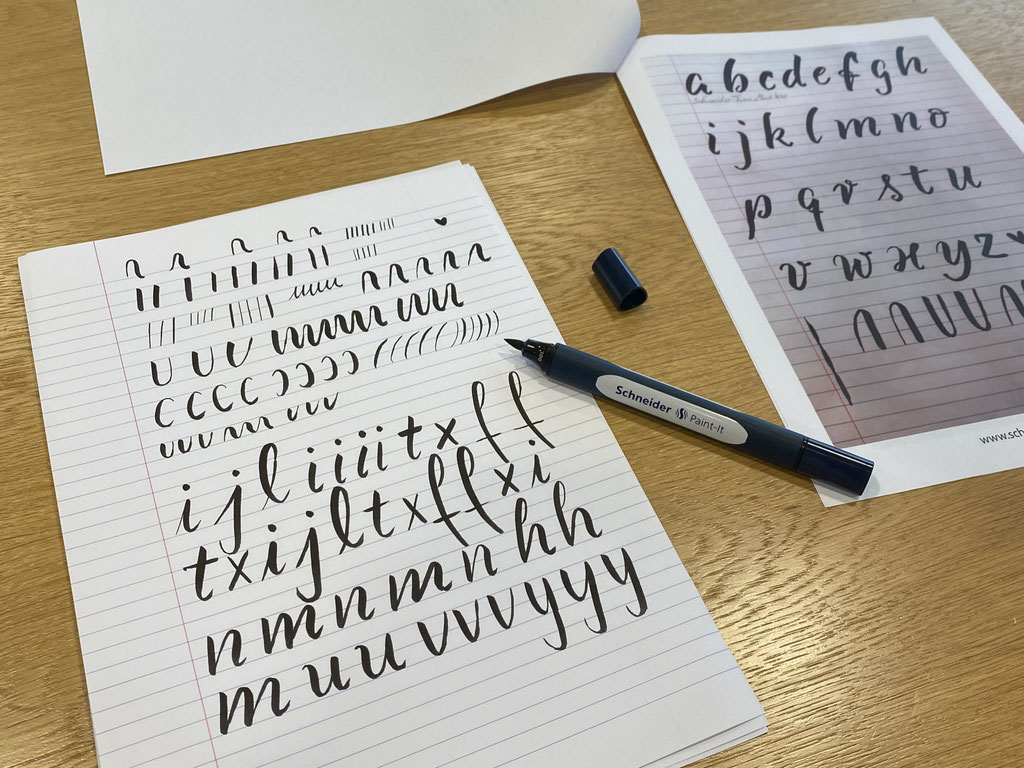 i j l i i i i t x f f
t x i j l t x f f x i
n m n m n h h
m u u v v v y y y
Schneider Paint-It
a b c d e f g h
i j k l m n o
p q r s t u
v w x y z
www.sch